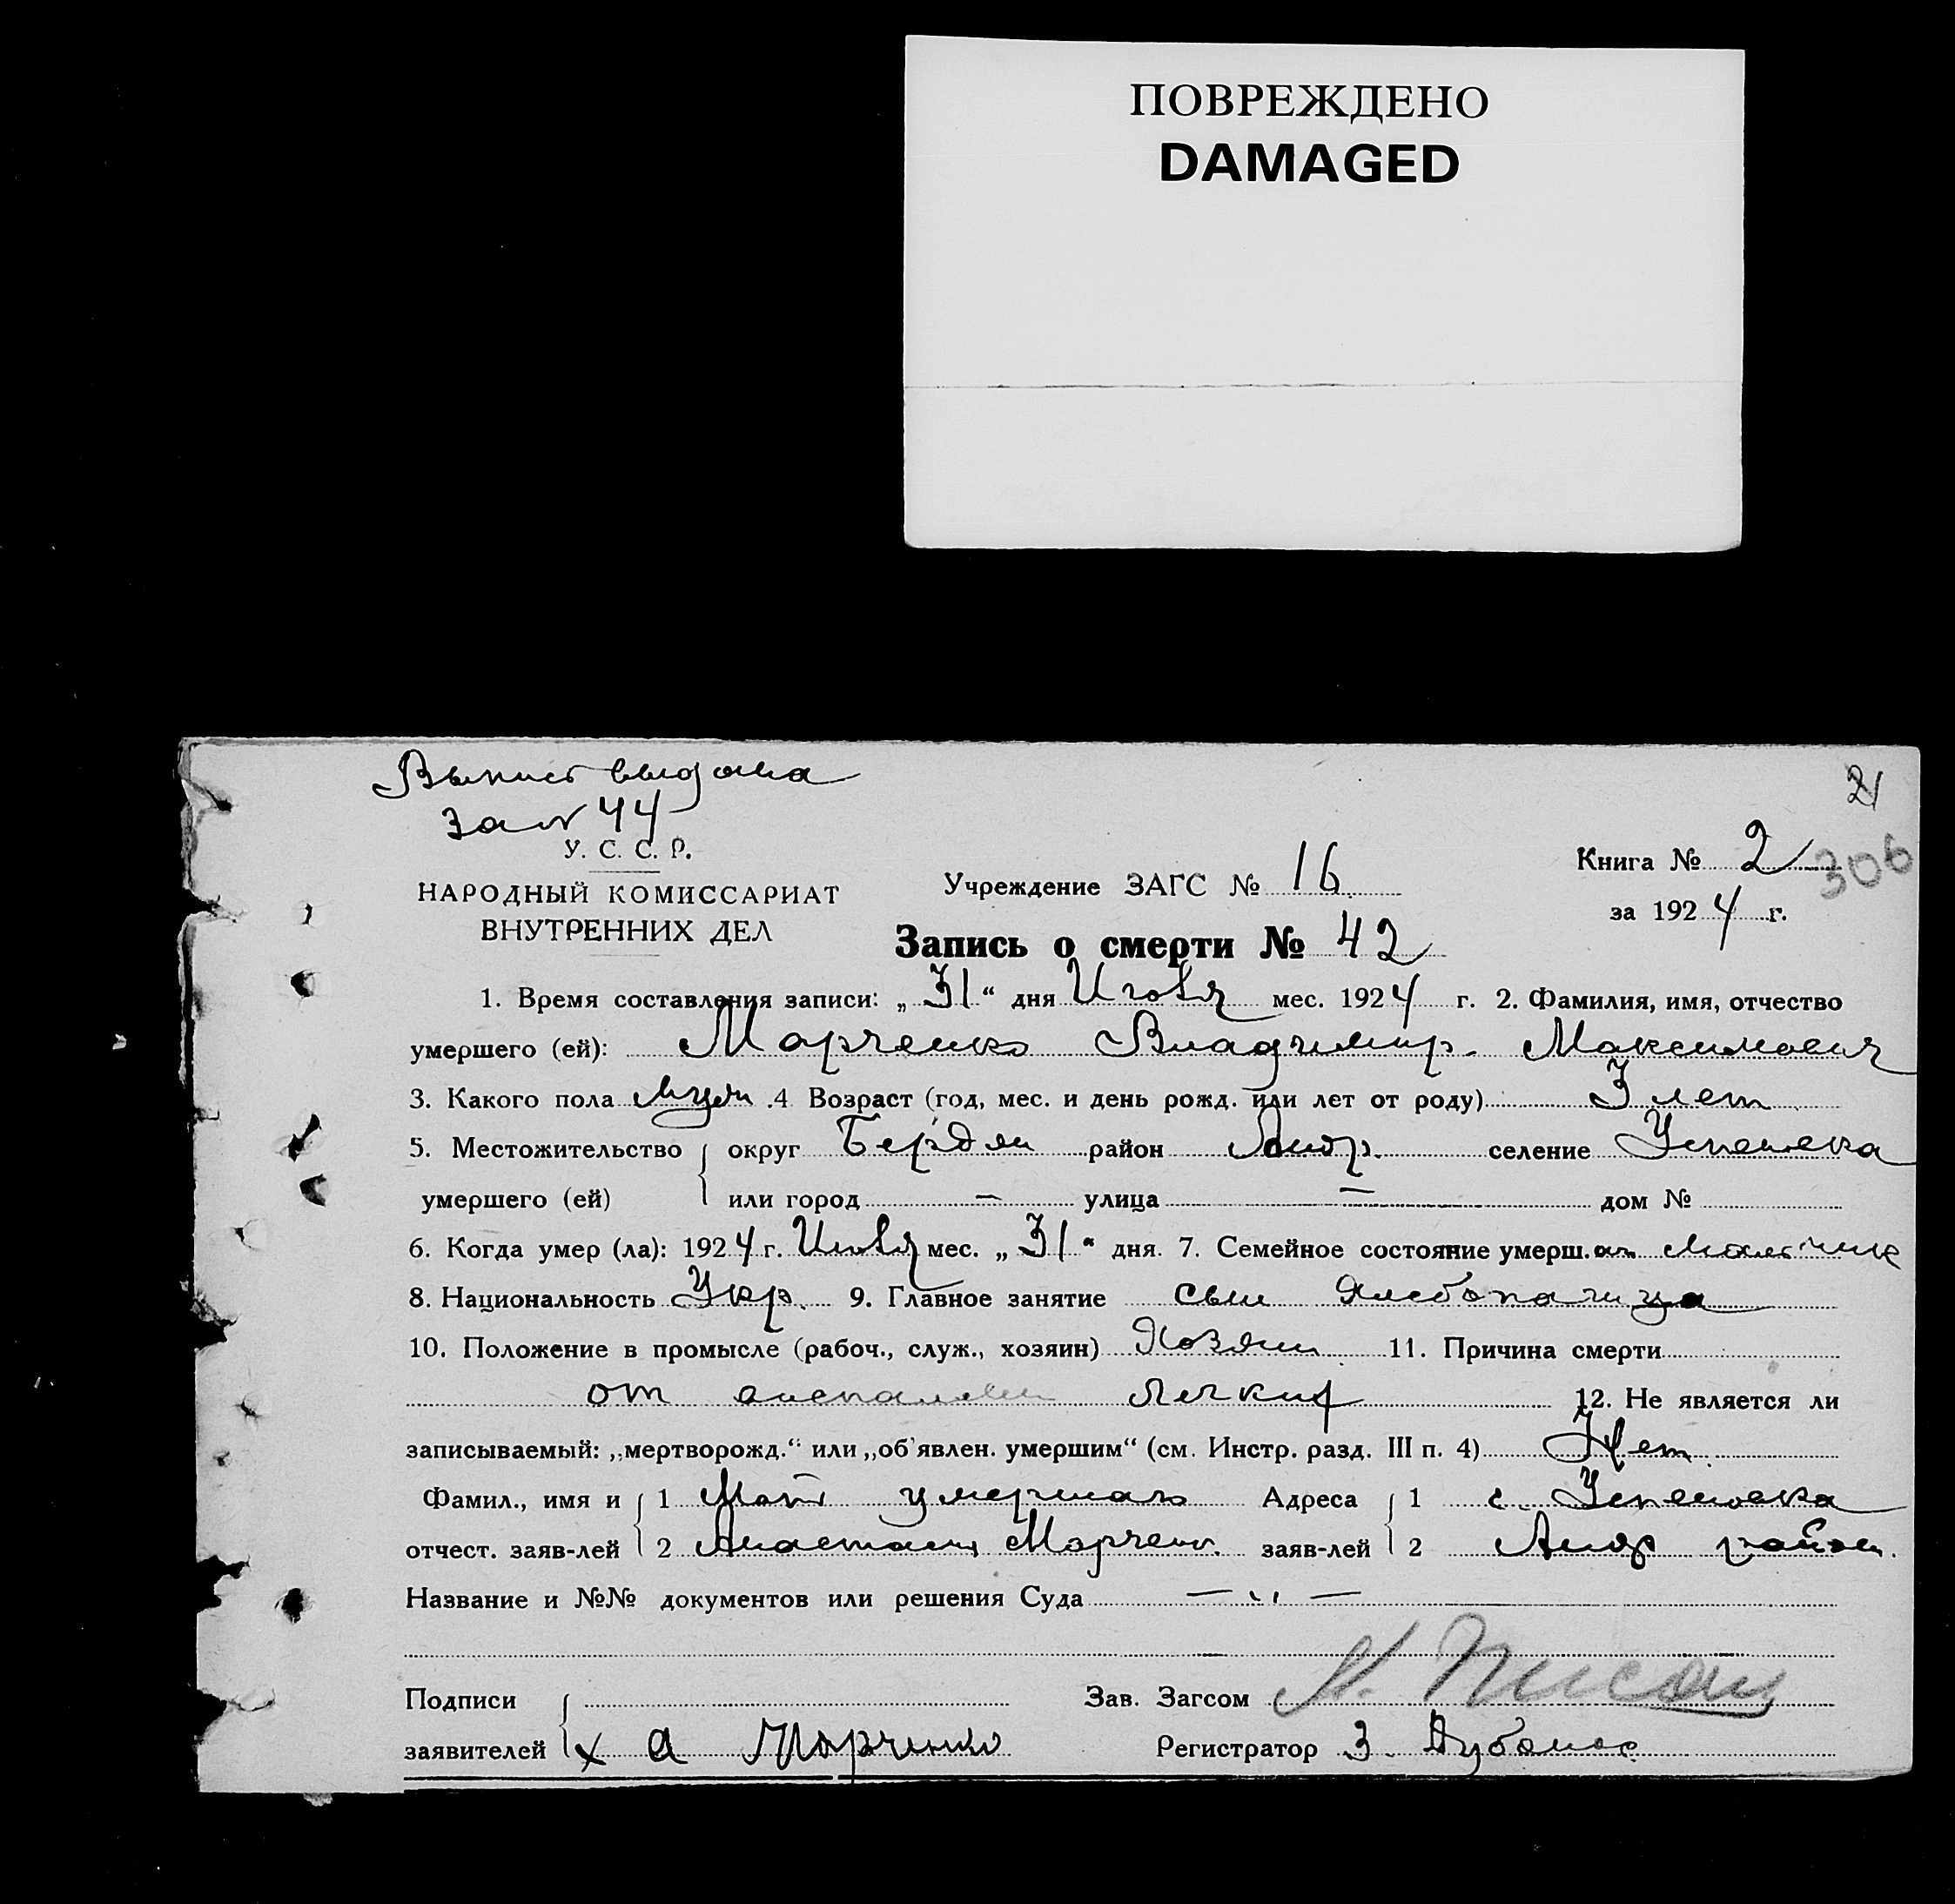 ПОВРЕЖДЕНО
DAMAGED
Выпись выдана
за № 44
21
У. С. С. Р.
НАРОДНЫЙ КОМИССАРИАТ
ВНУТРЕННИХ ДЕЛ
Учреждение ЗАГС № 16
Книга № 2
306
за 1924 г.
Запись о смерти № 42
1. Время составления записи: „31“ дня Июля мес. 1924 г. 2. Фамилия, имя, отчество
умершего (ей): Марченко Владимир Максимович
3. Какого пола муж .4 Возраст (год, мес. и день рожд. или лет от роду) 3 лет
5. Местожительство округ Бердян район Андр. селение Успеновка
умершего (ей) или город — улица — дом №
6. Когда умер (ла): 1924 г. Июля мес. „31“ дня. 7. Семейное состояние умерш. мальчик
8. Национальность Укр. 9. Главное занятие сын хлебопашца
10. Положение в промысле (рабоч., служ., хозяин) Хозяин 11. Причина смерти
от воспален легких 12. Не является ли
записываемый: „мертворожд.“ или „об'явлен. умершим“ (см. Инстр. разд. III п. 4) Нет
Фамил., имя и 1 Мать умершаго Адреса 1 с. Успеновка
отчест. заяв-лей 2 Анастасия Марченко заяв-лей 2 Андр район.
Название и №№ документов или решения Суда — „ —
Подписи Зав. Загсом
заявителей х А Марченко Регистратор З.